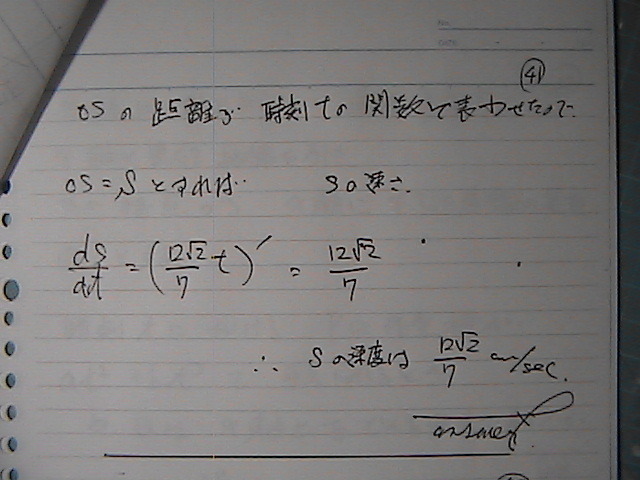 No.
DATE
㊶
OSの距離が 時刻tの関数で表わせたので
OS=Sとすれば Sの速さ
dS/dt = (12√2/7 t)′ = 12√2/7
∴ Sの速度は 12√2/7 cm/sec.
answer